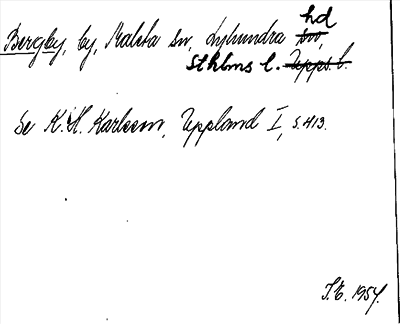 Bergby, by, Malsta sn, Lyhundra hd
Sthlms l. Upps. l.
Se K. H. Karlsson, Uppland I, s. 413.
S.E. 1954.